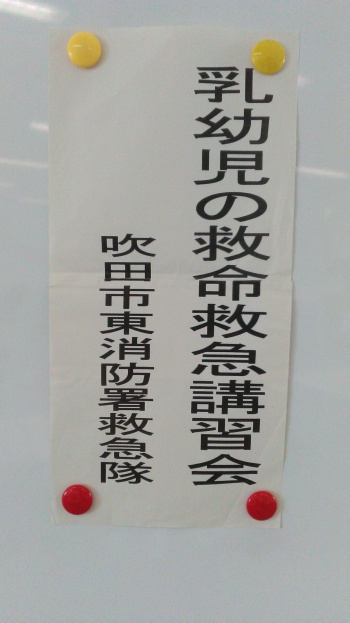 乳幼児の救命救急講習会
吹田市東消防署救急隊